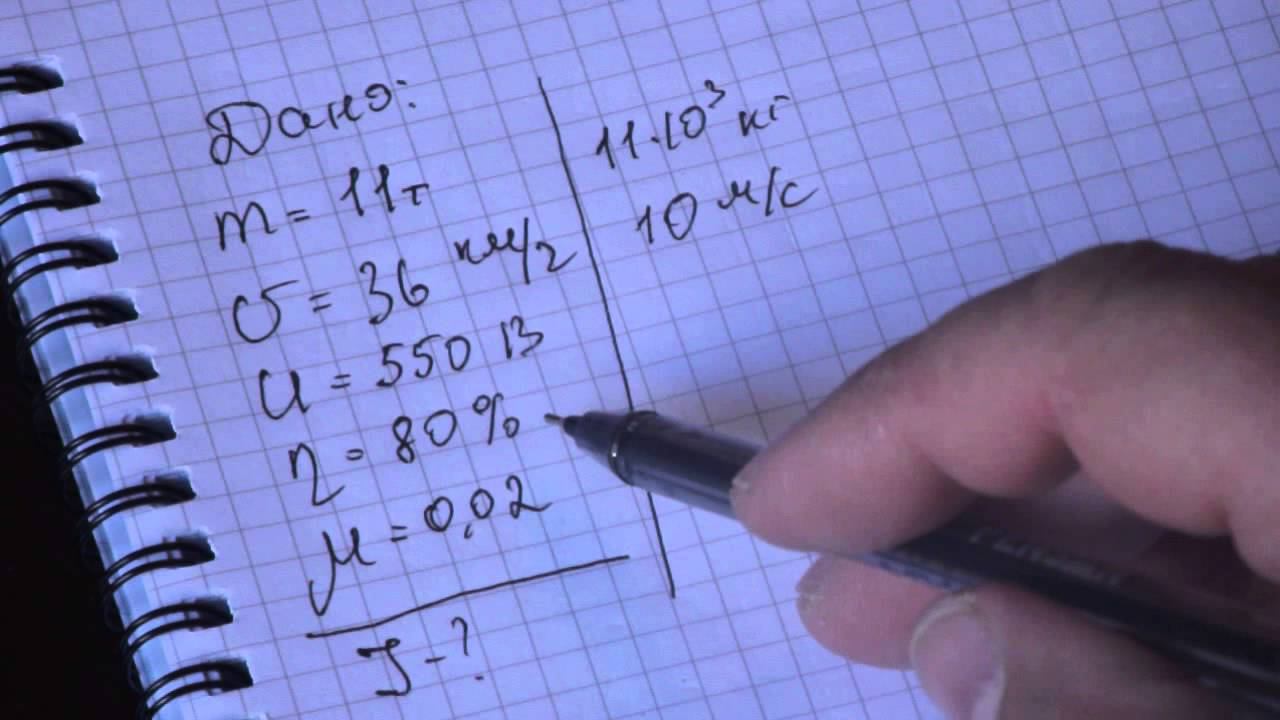 Дано:
m = 11т
υ = 36 км/г
U = 550 В
η = 80%
μ = 0,02
I - ?
11·10³ кг
10 м/с